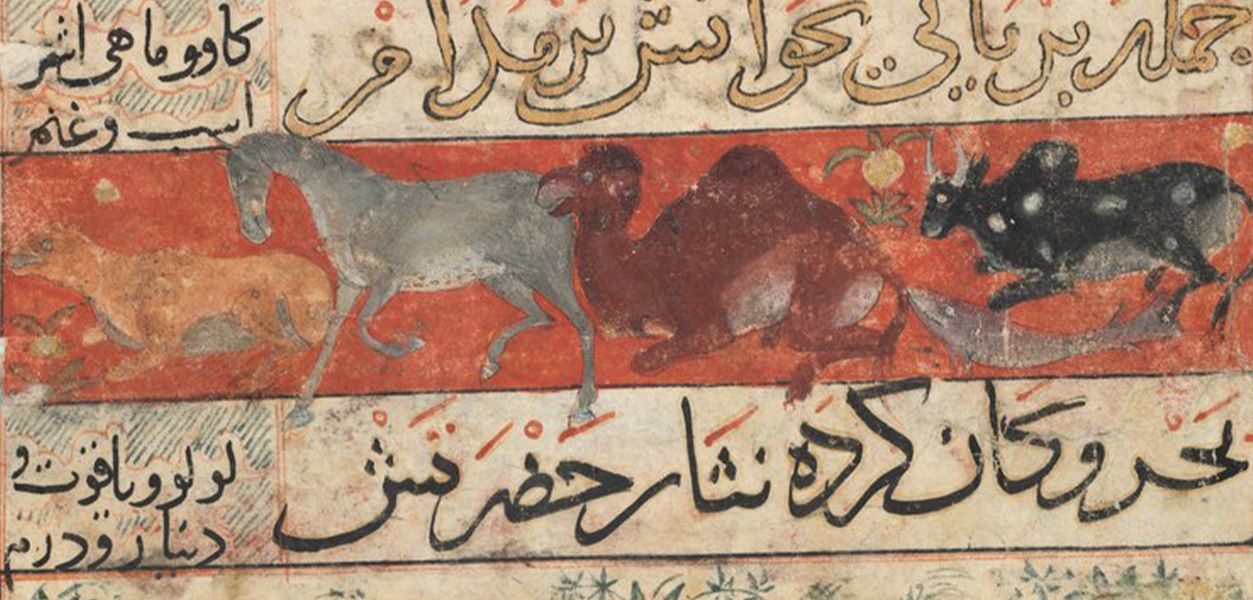 جمله بریانی بخوانش بر مدام
كاو و ماهی اشتر
اسب و غنم
بحر و كان كرده نثار حضرتش
لولو و یاقوت و
دینار و درم